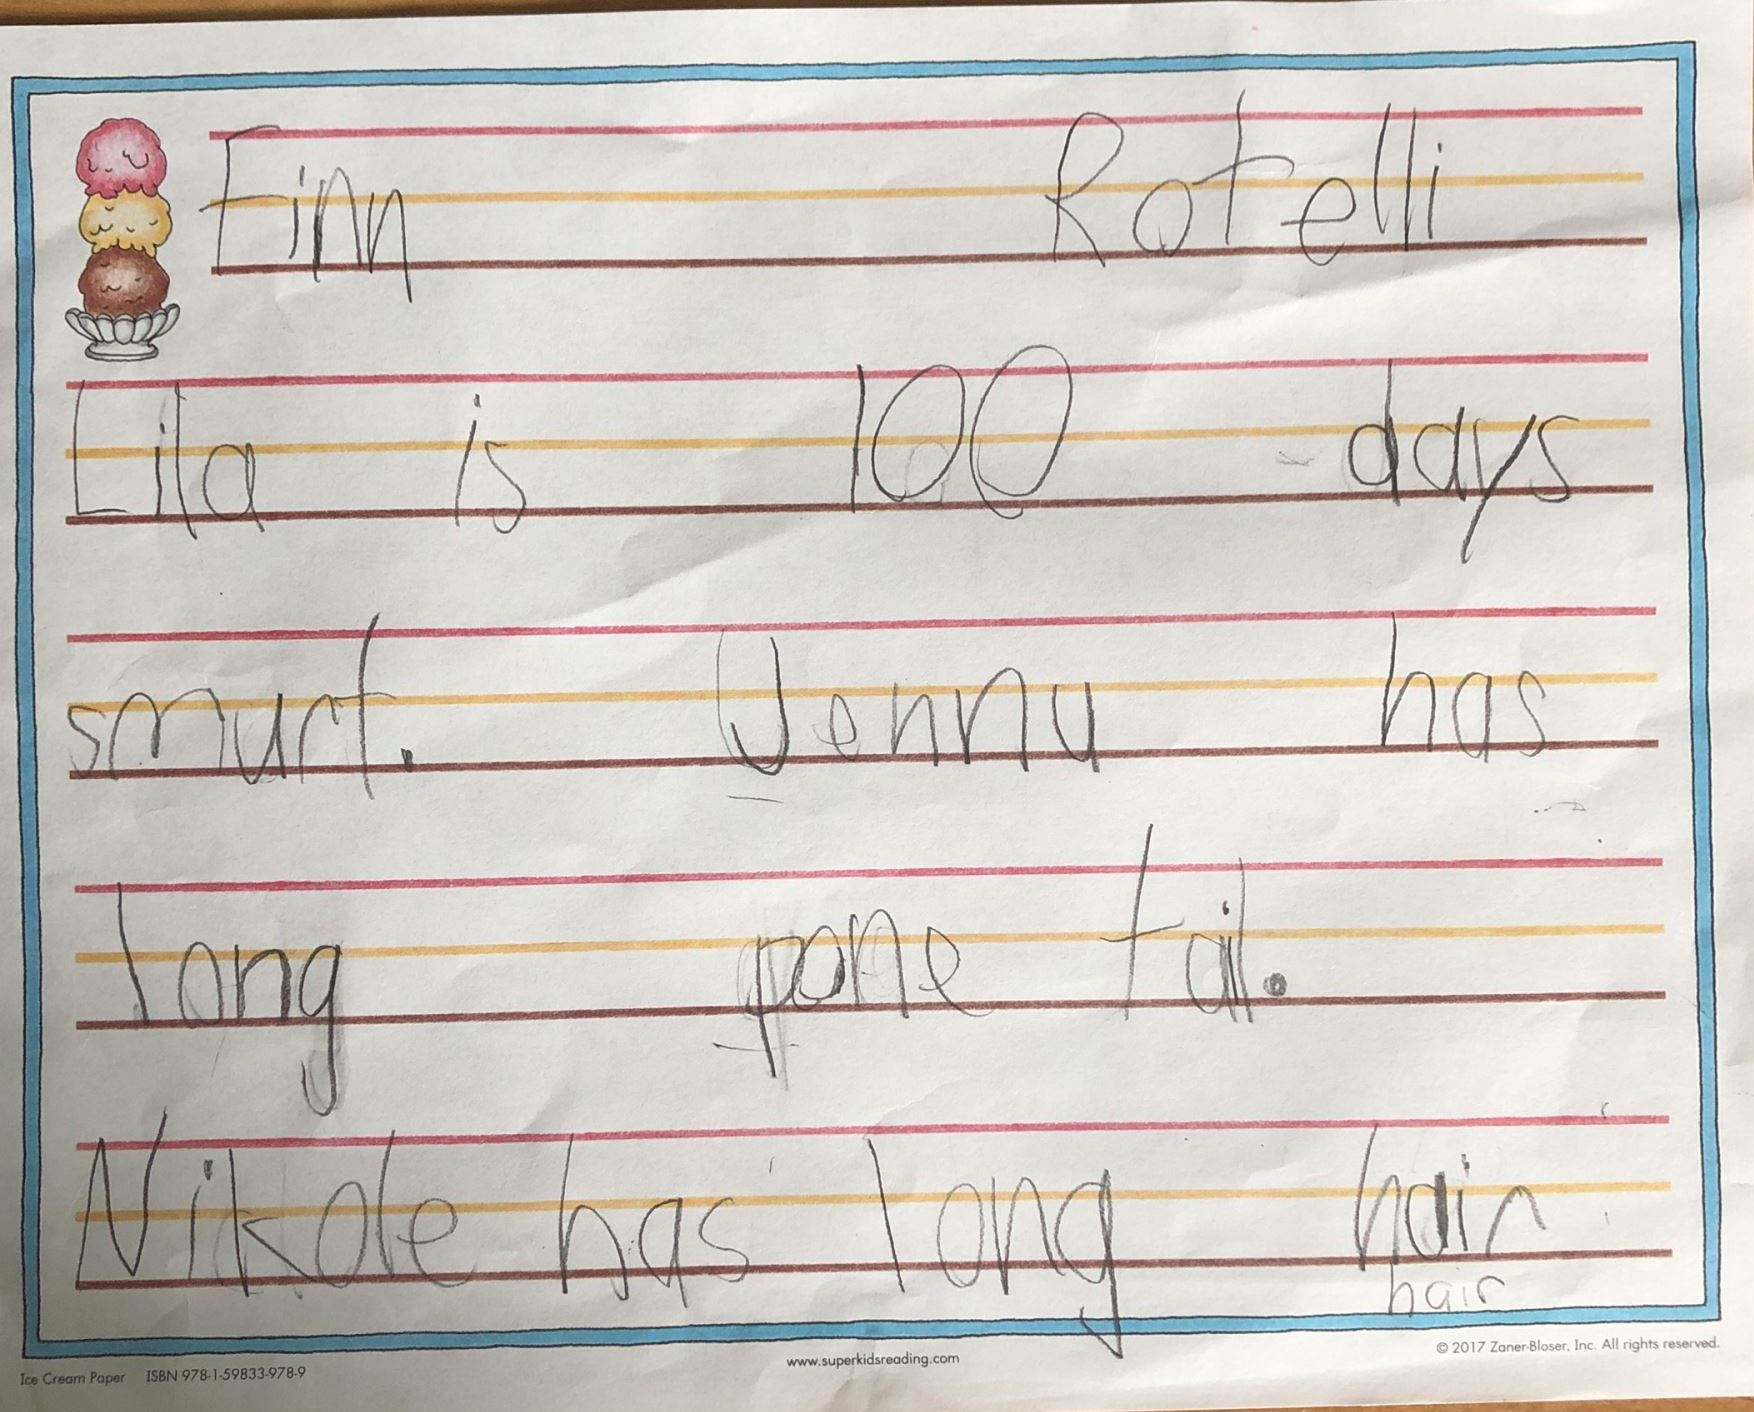 Finn Rotelli
Lila is 100 days
smurt. Jennu has
long pone tail.
Nikole has long hair
hair
Ice Cream Paper ISBN 978-1-59833-978-9
www.superkidsreading.com
© 2017 Zaner-Bloser, Inc. All rights reserved.